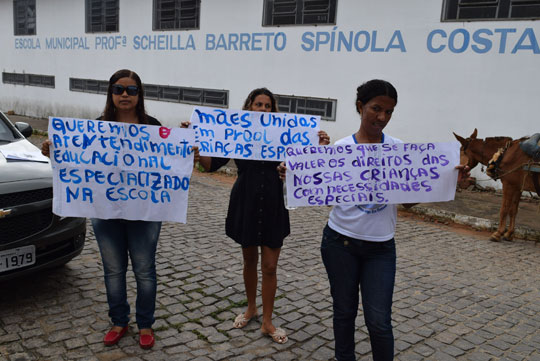 ESCOLA MUNICIPAL PROFª SCHEILLA BARRETO SPÍNOLA COSTA
QUEREMOS O
ATENTENDIMENTO
EDUCACIONAL
ESPECIALIZADO
NA ESCOLA
MÃES UNIDAS
EM PROOL DAS
CRIAÇAS ESP
QUEREMOS QUE SE FAÇA
VALER OS DIREITOS DAS
NOSSAS CRIANÇAS
COM NECESSIDADES
ESPECIAIS.
1979